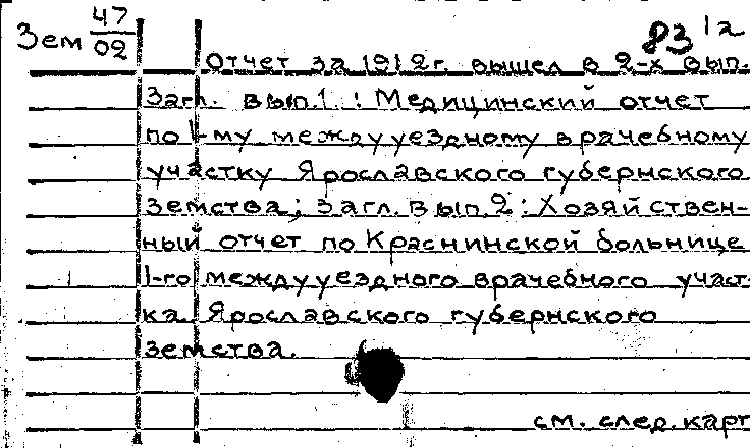 Зем 47/02
83 12
Отчет за 1912г. вышел в 2-х вып.
Загл. вып.1: Медицинский отчет
по 1-му междууездному врачебному
участку Ярославского губернского
земства; загл. вып.2: Хозяйствен-
ный отчет по Краснинской больнице
1-го междууездного врачебного участ-
ка Ярославского губернского
земства.
см. след. карт